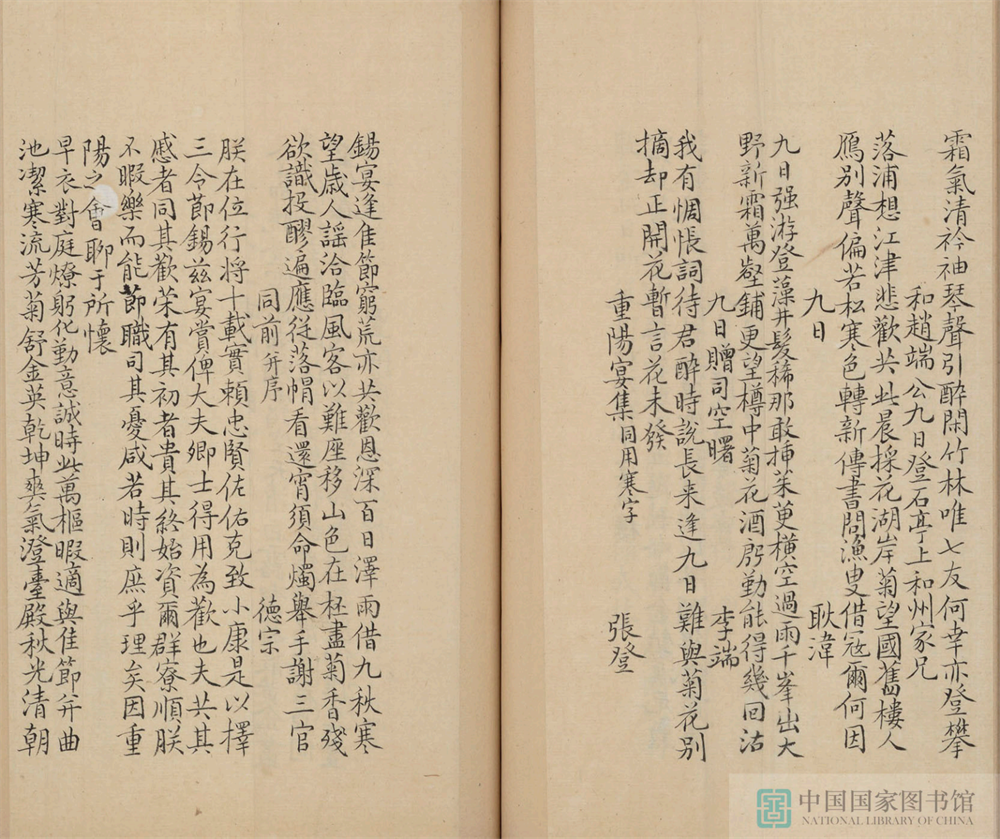 霜氣清衿袖琴聲引醉閑竹林唯七友何幸亦登攀
和趙端公九日登石亭上和州家兄
落浦想江津悲歡共此晨採花湖岸菊望國舊樓人
鴈別聲偏苦松寒色轉新傳書問漁叟借寇爾何因
九日　耿湋
九日强游登藻井髮稀那敢插茱萸横空過雨千峯出大
野新霜萬壑鋪更望樽中菊花酒殷勤能得幾回沽
九日贈司空曙　李端
我有惆悵詞待君醉時說長来逢九日難與菊花別
摘却正開花暫言花未發
重陽宴集同用寒字　張登
錫宴逢佳節窮荒亦共歡恩深百日澤雨借九秋寒
望歲人謡洽臨風客以難座移山色在杯盡菊香殘
欲識投醪遍應從落帽看還宵須命燭舉手謝三官
同前并序　德宗
朕在位行将十載實頼忠賢佐佑克致小康是以擇
三令節錫兹宴賞俾大夫卿士得用為歡也夫共其
慼者同其歡荣有其初者貴其終始資爾群寮順朕
不暇樂而能節職司其憂咸若時則庶乎理矣因重
陽之會聊于所懷
早衣對庭燎躬化勤意誠時此萬樞暇適與佳節并曲
池凓寒流芳菊舒金英乾坤爽氣澄臺殿秋光清朝
中国国家图书馆
NATIONAL LIBRARY OF CHINA